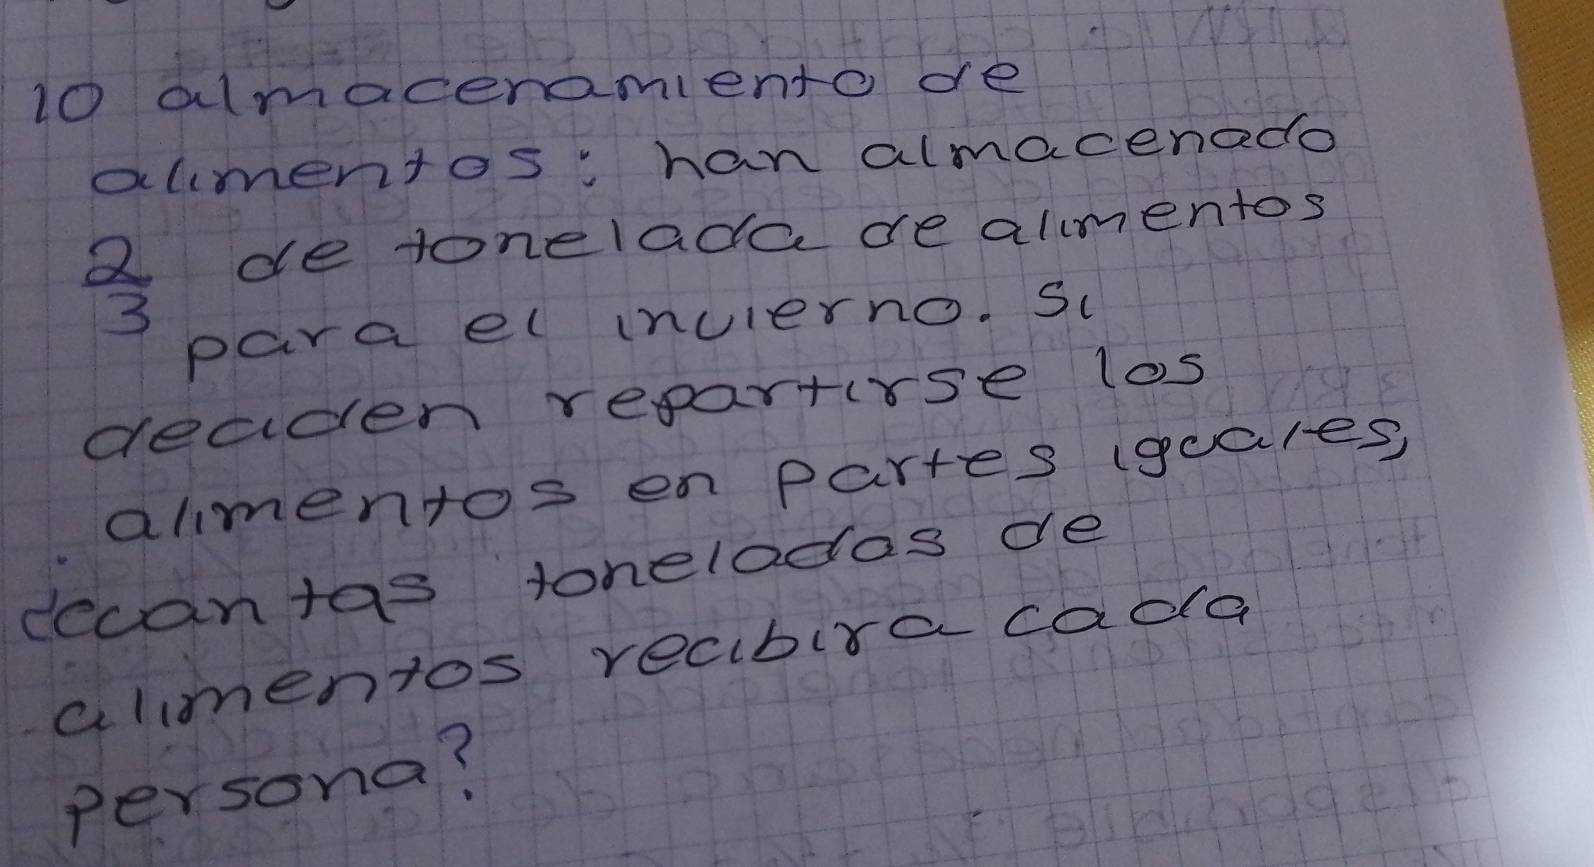 10 almacenamiento de
alimentos: han almacenado
2/3 de tonelada de alimentos
para el invierno. Si
deciden repartirse los
alimentos en partes iguales,
¿cuantas toneladas de
alimentos recibira cada
persona?